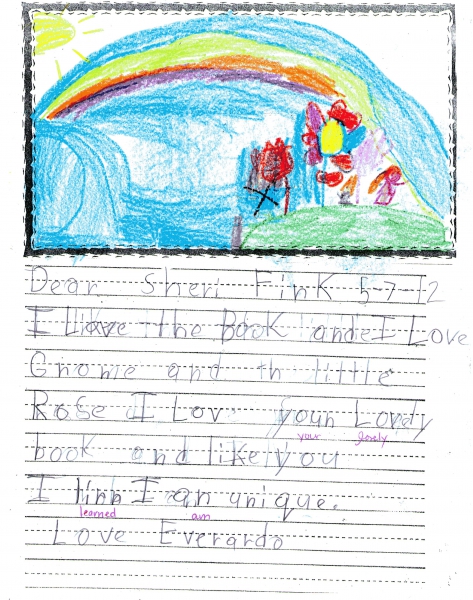 Dear Sheri Fink 5-7-12
I like the Book ande I Love
Gnome and th little
Rose I Lov youn Lovely
your lovely
book and like you
I linn I an unique.
learned am
Love Everardo